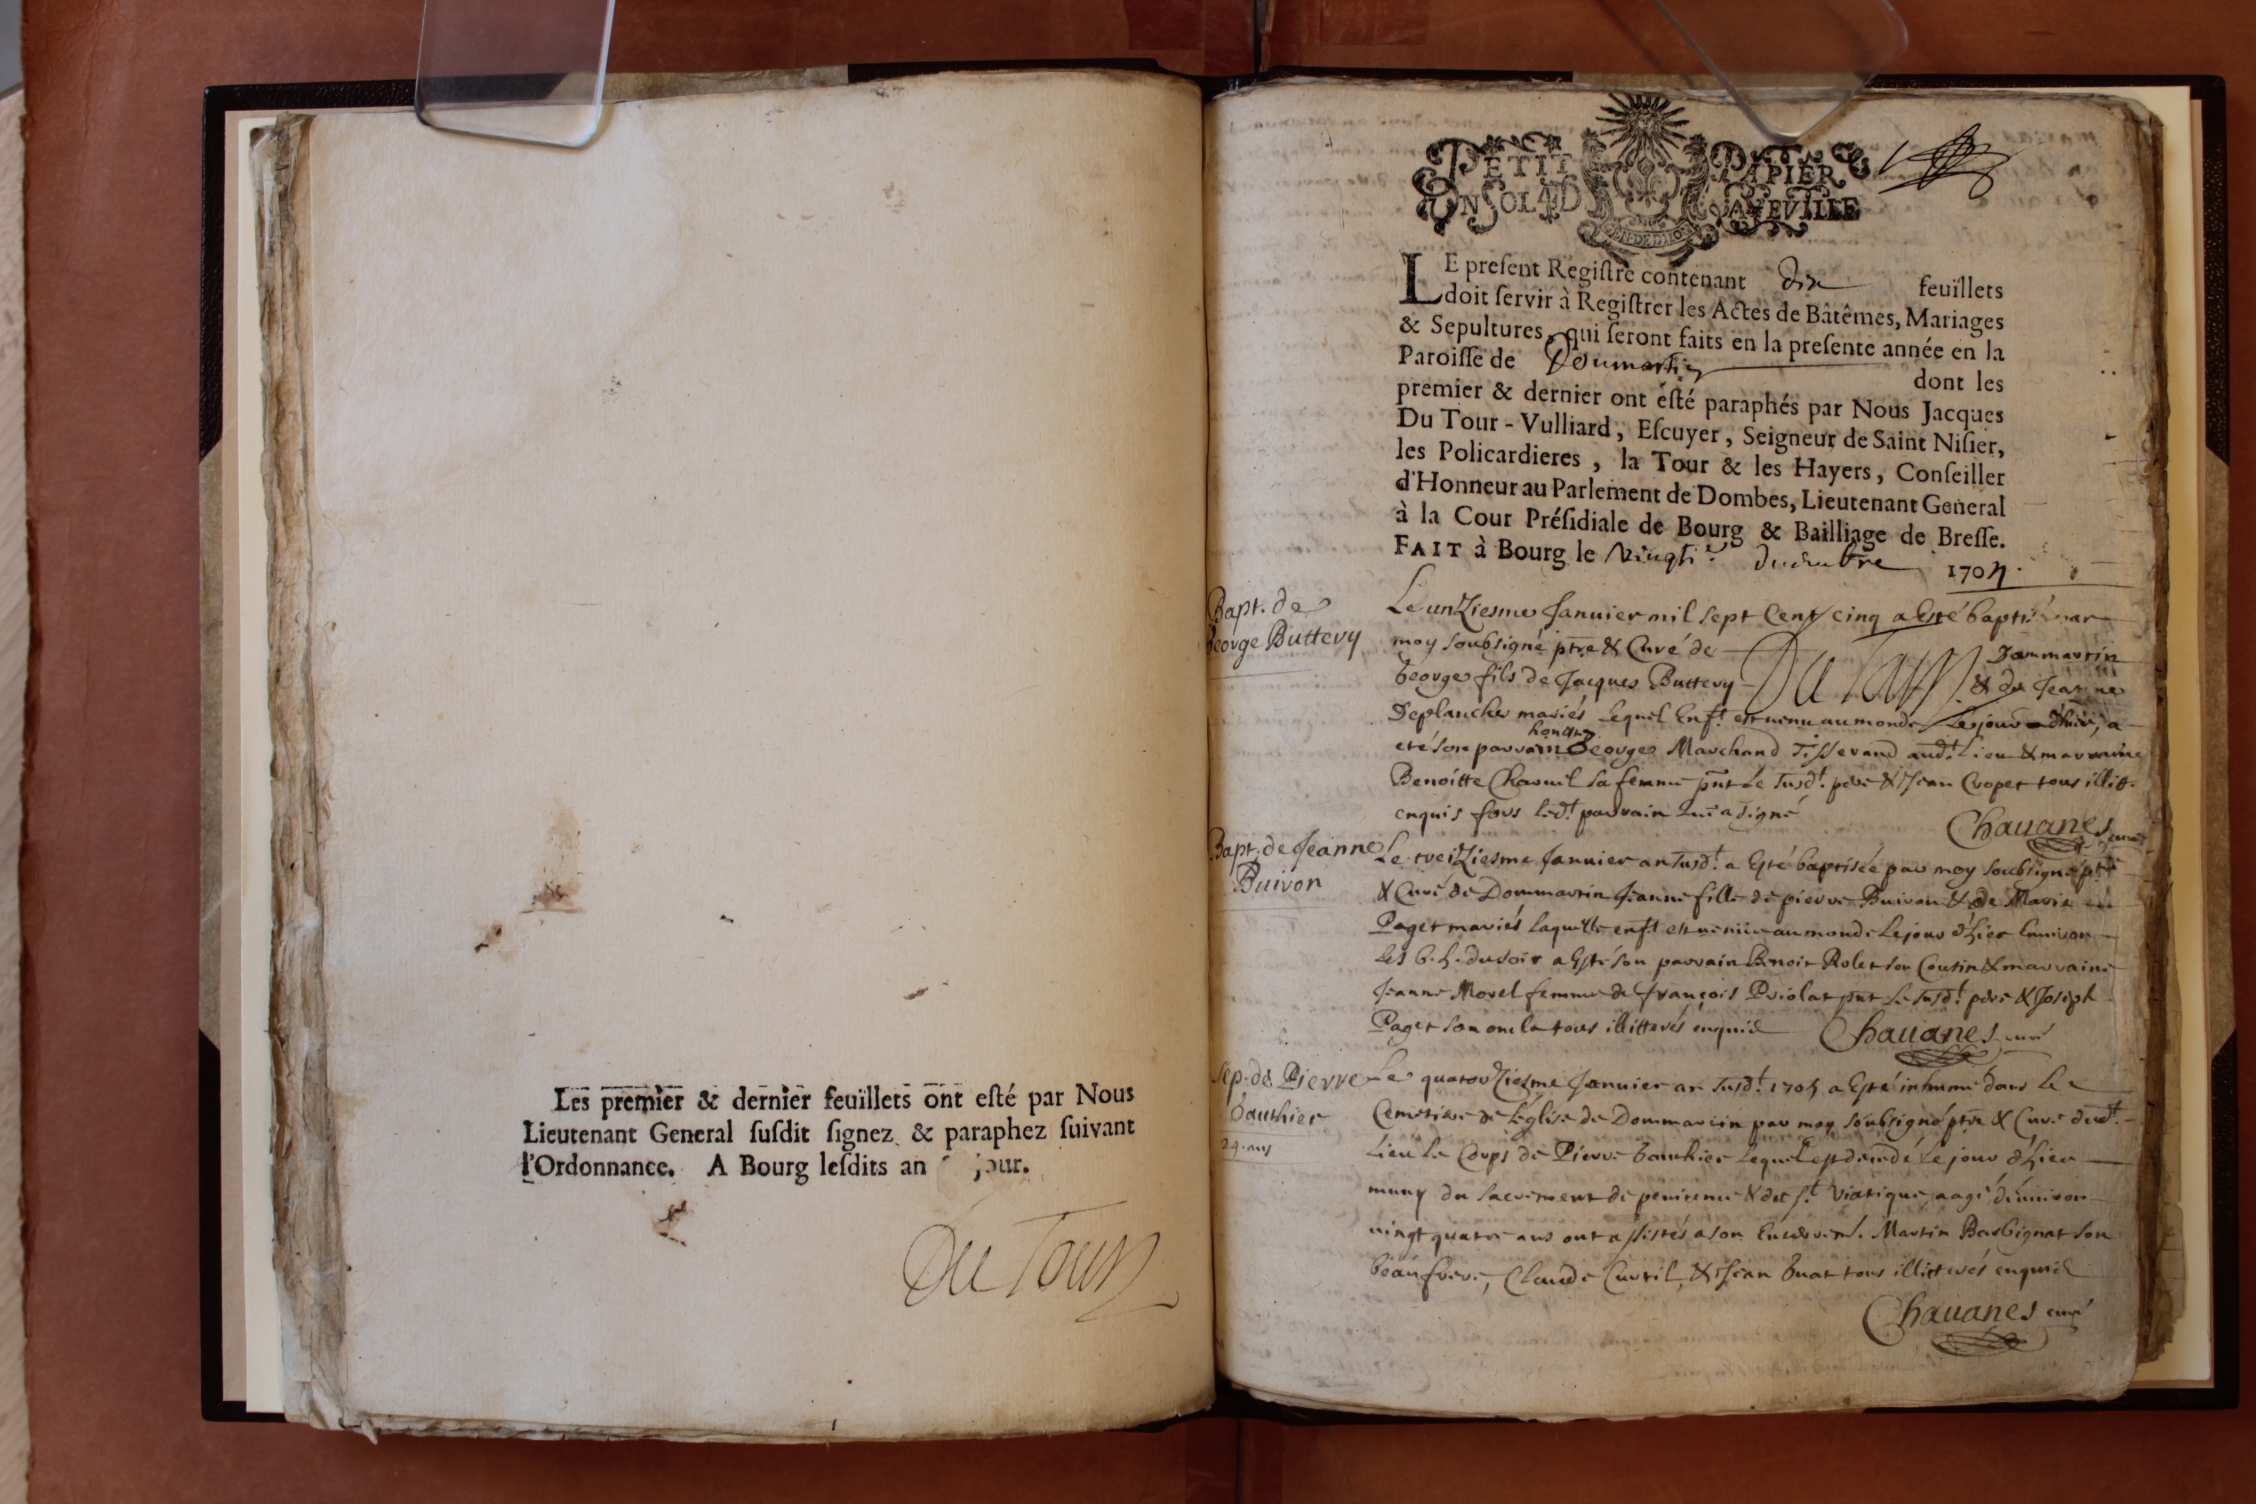 Les premier & dernier feuillets ont esté par Nous
Lieutenant General susdit signez & paraphez suivant
l'Ordonnance. A Bourg lesdits an jour.
Du Tour
PETIT PAPIER
UN SOL 4 D LA FEUILLE
LE present Registre contenant dix feuillets
doit servir à Registrer les Actes de Bâtêmes, Mariages
& Sepultures, qui seront faits en la presente année en la
Paroisse de Doumartin dont les
premier & dernier ont ésté paraphés par Nous Jacques
Du Tour-Vulliard, Escuyer, Seigneur de Saint Nisier,
les Policardieres, la Tour & les Hayers, Conseiller
d'Honneur au Parlement de Dombes, Lieutenant General
à la Cour Présidiale de Bourg & Bailliage de Bresse.
FAIT à Bourg le vingt 170
Bapt. de
George Buttery
Le unziesme Januier mil sept cent cinq a esté baptisé par
moy soubsigné ptre & Curé de Dommartin
Du Tour
George fils de Jacques Buttery & de Jeanne
Deplanche mariés lequel enft est venu au monde le jour d'hier, a
eté son parrain honble George Marchand Tisserand audt lieu & marraine
Benoitte sa femme pnt le susdt pere & Jean Cropet tous illitt.
enquis fors ledt parrain qui a signé
Chauanes curé
Bapt. de Jeanne
Buiron
Le treiziesme Januier an susdt a esté baptisée par moy soubsigné ptre
& Curé de Dommartin Jeanne fille de pierre Buiron & de Marie
Paget mariés laquelle enft est venüe au monde le jour d'hier enuiron
les 6. h. du soir a esté son parrain Benoit Rolet son Cousin & marraine
Jeanne Morel femme de françois Priolat pnt le susdt pere & Joseph
Paget son oncle tous illitterés enquis
Chauanes curé
Sep. de Pierre
Gauthier
24. ans
Le quatorziesme Januier an susdt 1705 a esté inhumé dans le
Cemetiere de l'église de Dommartin par moy soubsigné ptre & Curé dudt
lieu le Corps de Pierre Gauthier lequel est decedé le jour d'hier
muny du sacrement de penitence & du st Viatique, aagé d'enuiron
vingt quatre ans ont assistés a son enterremt. Martin Barbignat son
beaufrere, Claude Curtil, & Jean Buat tous illitterés enquis
Chauanes curé